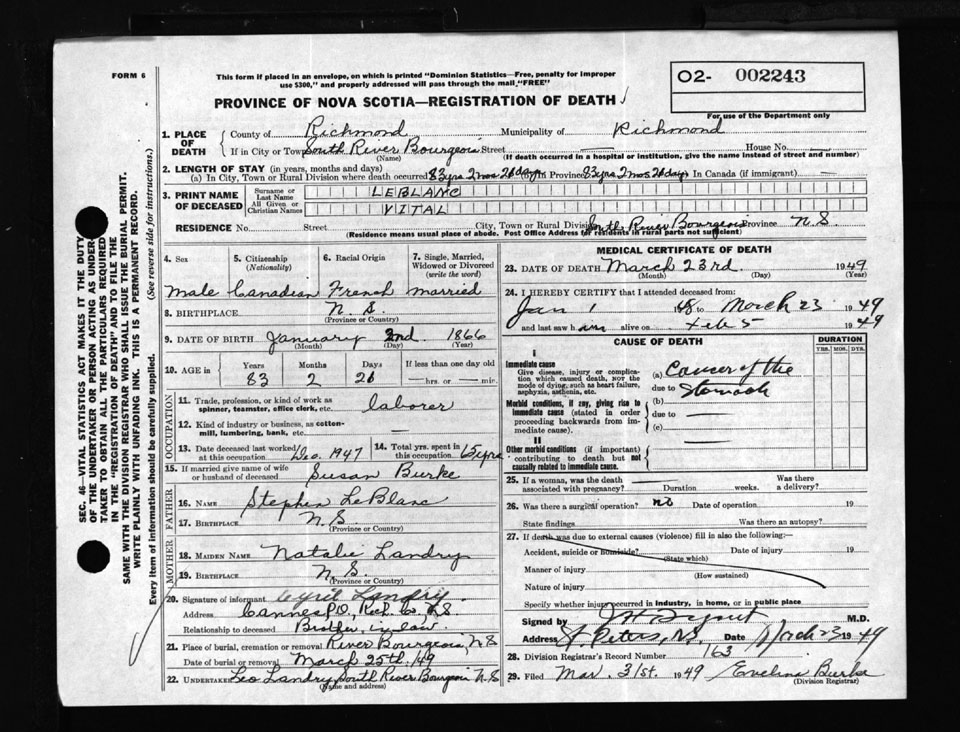 FORM 6
This form if placed in an envelope, on which is printed "Dominion Statistics—Free, penalty for improper
use $300," and properly addressed will pass through the mail "FREE"
O2- 002243
For use of the Department only
PROVINCE OF NOVA SCOTIA—REGISTRATION OF DEATH
1. PLACE OF DEATH
County of Richmond Municipality of Richmond
If in City or Town South River Bourgeois Street — House No. —
(Name) (If death occurred in a hospital or institution, give the name instead of street and number)
2. LENGTH OF STAY (in years, months and days)
(a) In City, Town or Rural Division where death occurred 83 yrs 2 mos 26 days (b) In Province 83 yrs 2 mos 26 days In Canada (if immigrant) —
3. PRINT NAME OF DECEASED
Surname or Last Name LEBLANC
All Given or Christian Names VITAL
RESIDENCE No. Street City, Town or Rural Division South River Bourgeois Province N.S.
(Residence means usual place of abode. Post Office Address for residents in rural parts not sufficient)
4. Sex 5. Citizenship (Nationality) 6. Racial Origin 7. Single, Married, Widowed or Divorced (write the word)
male Canadian French married
8. BIRTHPLACE N.S.
(Province or Country)
9. DATE OF BIRTH January 2nd 1866
(Month) (Day) (Year)
10. AGE in Years Months Days If less than one day old
83 2 26 —hrs. or —min.
OCCUPATION
11. Trade, profession or kind of work as spinner, teamster, office clerk, etc. laborer
12. Kind of industry or business, as cotton-mill, lumbering, bank, etc. —
13. Date deceased last worked at this occupation Dec. 1947 14. Total yrs. spent in this occupation 65 yrs
15. If married give name of wife or husband of deceased Susan Burke
FATHER
16. NAME Stephen LeBlanc
17. BIRTHPLACE N.S.
(Province or Country)
MOTHER
18. MAIDEN NAME Natalie Landry
19. BIRTHPLACE N.S.
(Province or Country)
20. Signature of informant Cyril Landry
Address Cannes P.O., Rich. Co. N.S
Relationship to deceased Brother, in law.
21. Place of burial, cremation or removal River Bourgeois, N.S
Date of burial or removal March 25th/49
22. UNDERTAKER Leo Landry South River Bourgeois N.S
(Name and address)
MEDICAL CERTIFICATE OF DEATH
23. DATE OF DEATH March 23rd 1949
(Month) (Day)
24. I HEREBY CERTIFY that I attended deceased from:
Jan 1 48 to March 23 1949
and last saw him alive on Feb 5 1949
CAUSE OF DEATH
DURATION
YRS. MOS. DYS.
I
Immediate cause
Give disease, injury or complication which caused death, NOT the mode of dying, such as heart failure, asphyxia, asthenia, etc.
(a) Cancer of the
due to Stomach
Morbid conditions, if any, giving rise to immediate cause (stated in order proceeding backwards from immediate cause).
(b)
due to —
(c)
II
Other morbid conditions (if important) contributing to death but not causally related to immediate cause.
25. If a woman, was the death associated with pregnancy? — Duration weeks. Was there a delivery?
26. Was there a surgical operation? no Date of operation 19
State findings Was there an autopsy?
27. If death was due to external causes (violence) fill in also the following:—
Accident, suicide or homicide? Date of injury 19
(State which)
Manner of injury
(How sustained)
Nature of injury
Specify whether injury occurred in industry, in home, or in public place
Signed by M.D.
Address St Peters, N.S. Date March 23 1949
28. Division Registrar's Record Number 163
29. Filed Mar. 31st. 1949 Eveline Burke
(Division Registrar)
SEC. 46—VITAL STATISTICS ACT MAKES IT THE DUTY
OF THE UNDERTAKER OR PERSON ACTING AS UNDER-
TAKER TO OBTAIN ALL THE PARTICULARS REQUIRED
IN THE "REGISTRATION OF DEATH" AND TO FILE THE
SAME WITH THE DIVISION REGISTRAR WHO SHALL ISSUE THE BURIAL PERMIT.
WRITE PLAINLY WITH UNFADING INK. THIS IS A PERMANENT RECORD.
Every item of information should be carefully supplied. (See reverse side for instructions.)